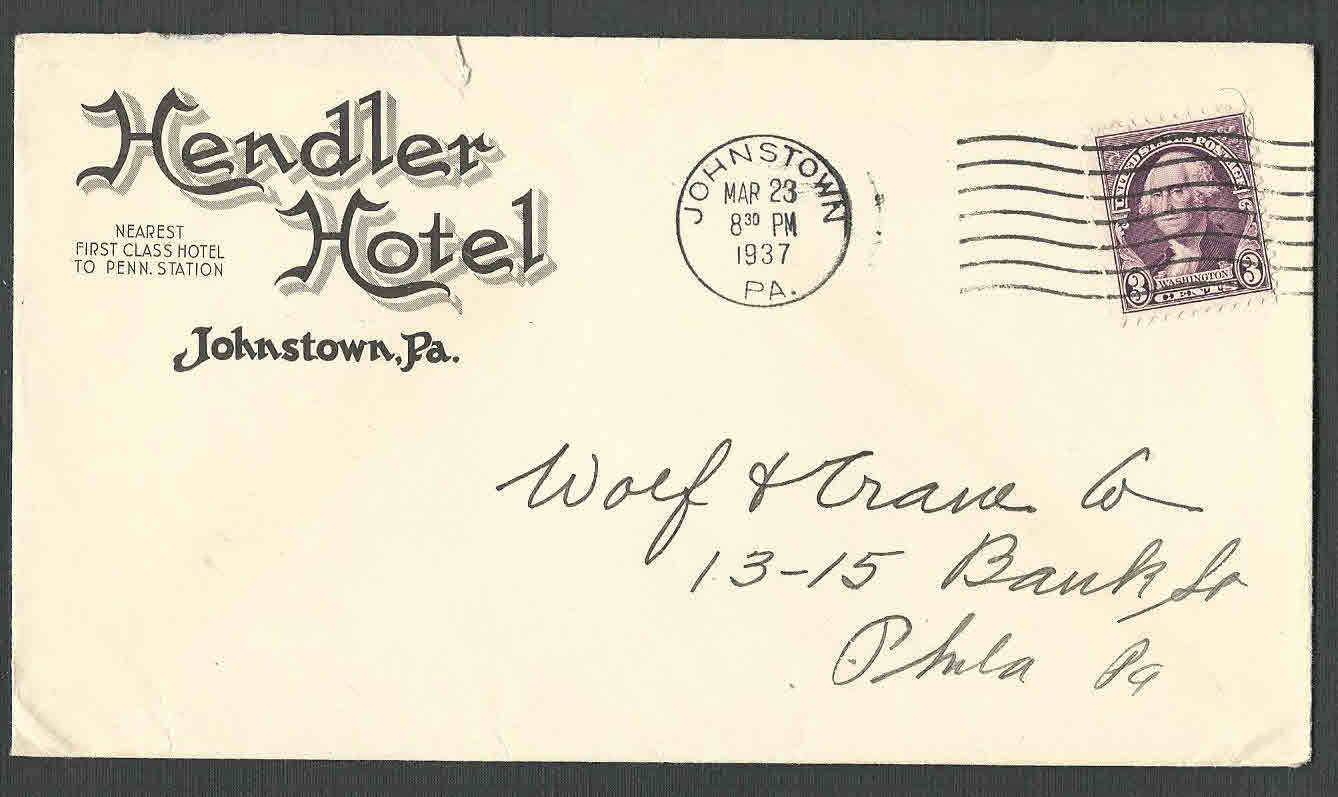 Hendler
Hotel
NEAREST
FIRST CLASS HOTEL
TO PENN. STATION
Johnstown, Pa.
JOHNSTOWN
MAR 23
8 30 PM
1937
PA.
UNITED STATES POSTAGE
3 WASHINGTON 3
CENTS
Wolf & Crane Co
13-15 Bank St
Phila Pa